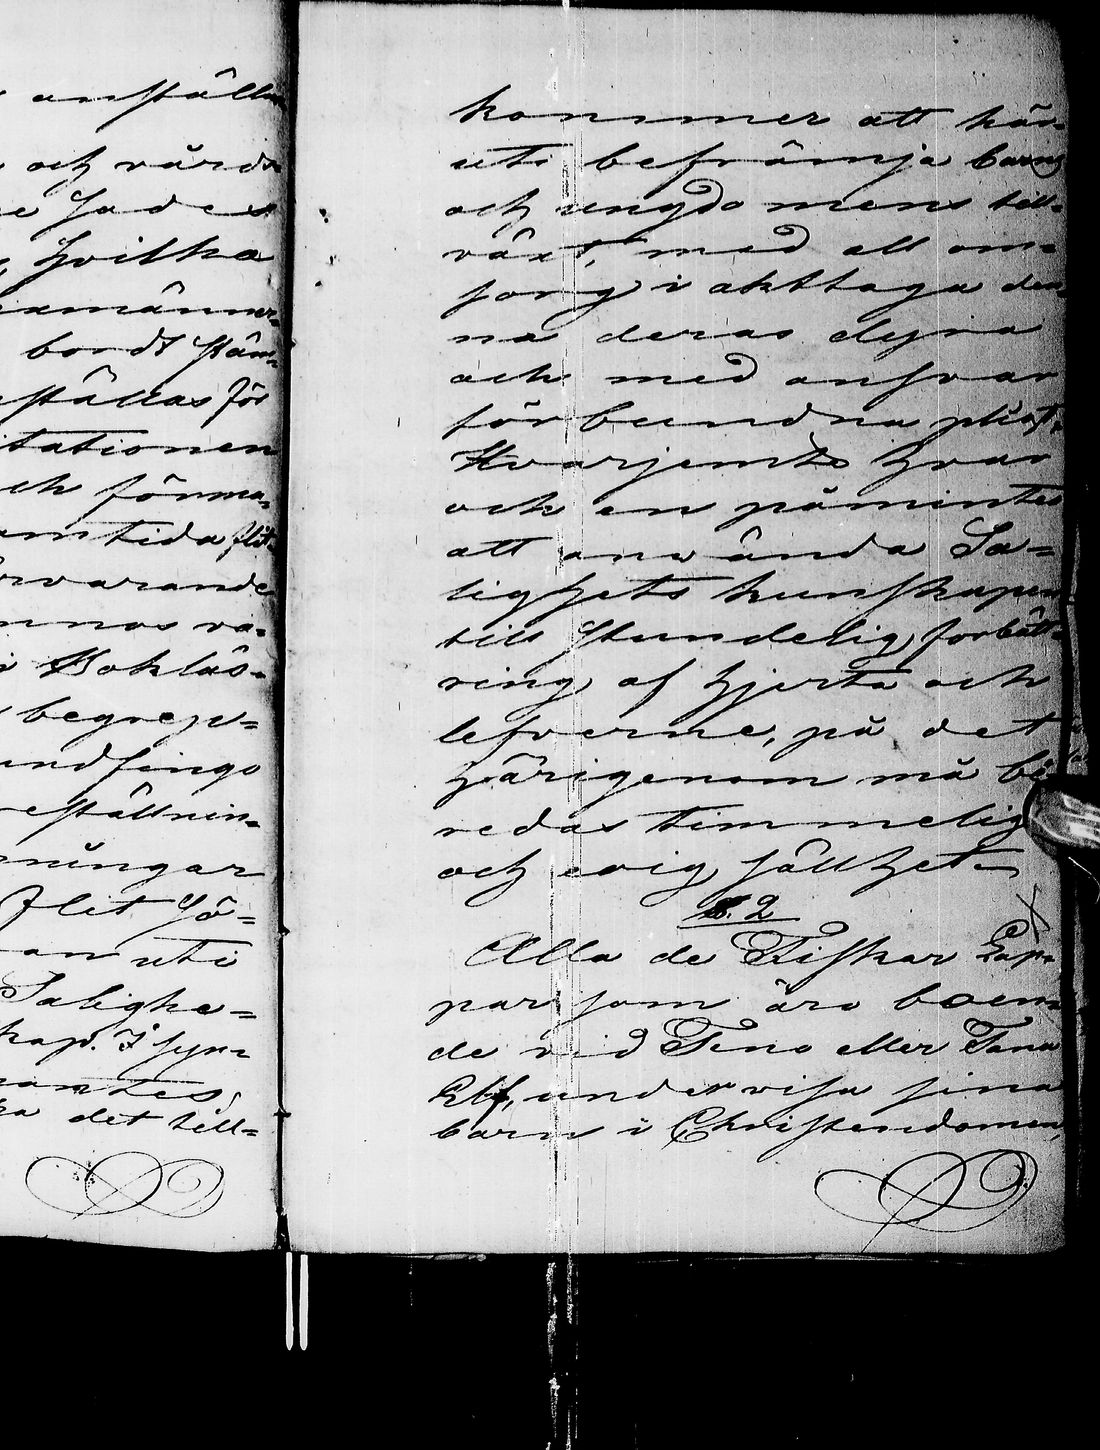 anställ
och vårda
Fader
hvilka
examänner-
bordt stäm-
ställas för
itationen
och förma-
samtida flit-
orvarande
i Boklås-
begrep-
undfingo
eställnin-
ningar
flit hö-
an uti
Salighe-
kap. I syn-
det till-
kommer att här-
uti befrämja barns
och ungdomens till-
växt, med all om-
sorg i akttaga den-
na deras dyra
och med ansvar
förbundna pligt.
Hvarjemte hvar
och en påmintes
att använda Sa-
lighets kunskapen
till stundelig förbätt-
ring af hjerta och
lefverne, på det
härigenom må be-
redas timmelig
och evig sällhet.
§. 2
Alla de Fiskar Lap-
par som äro boen-
de vid Teno eller Tana
Elf, undervisa sina
barn i Christendomen,